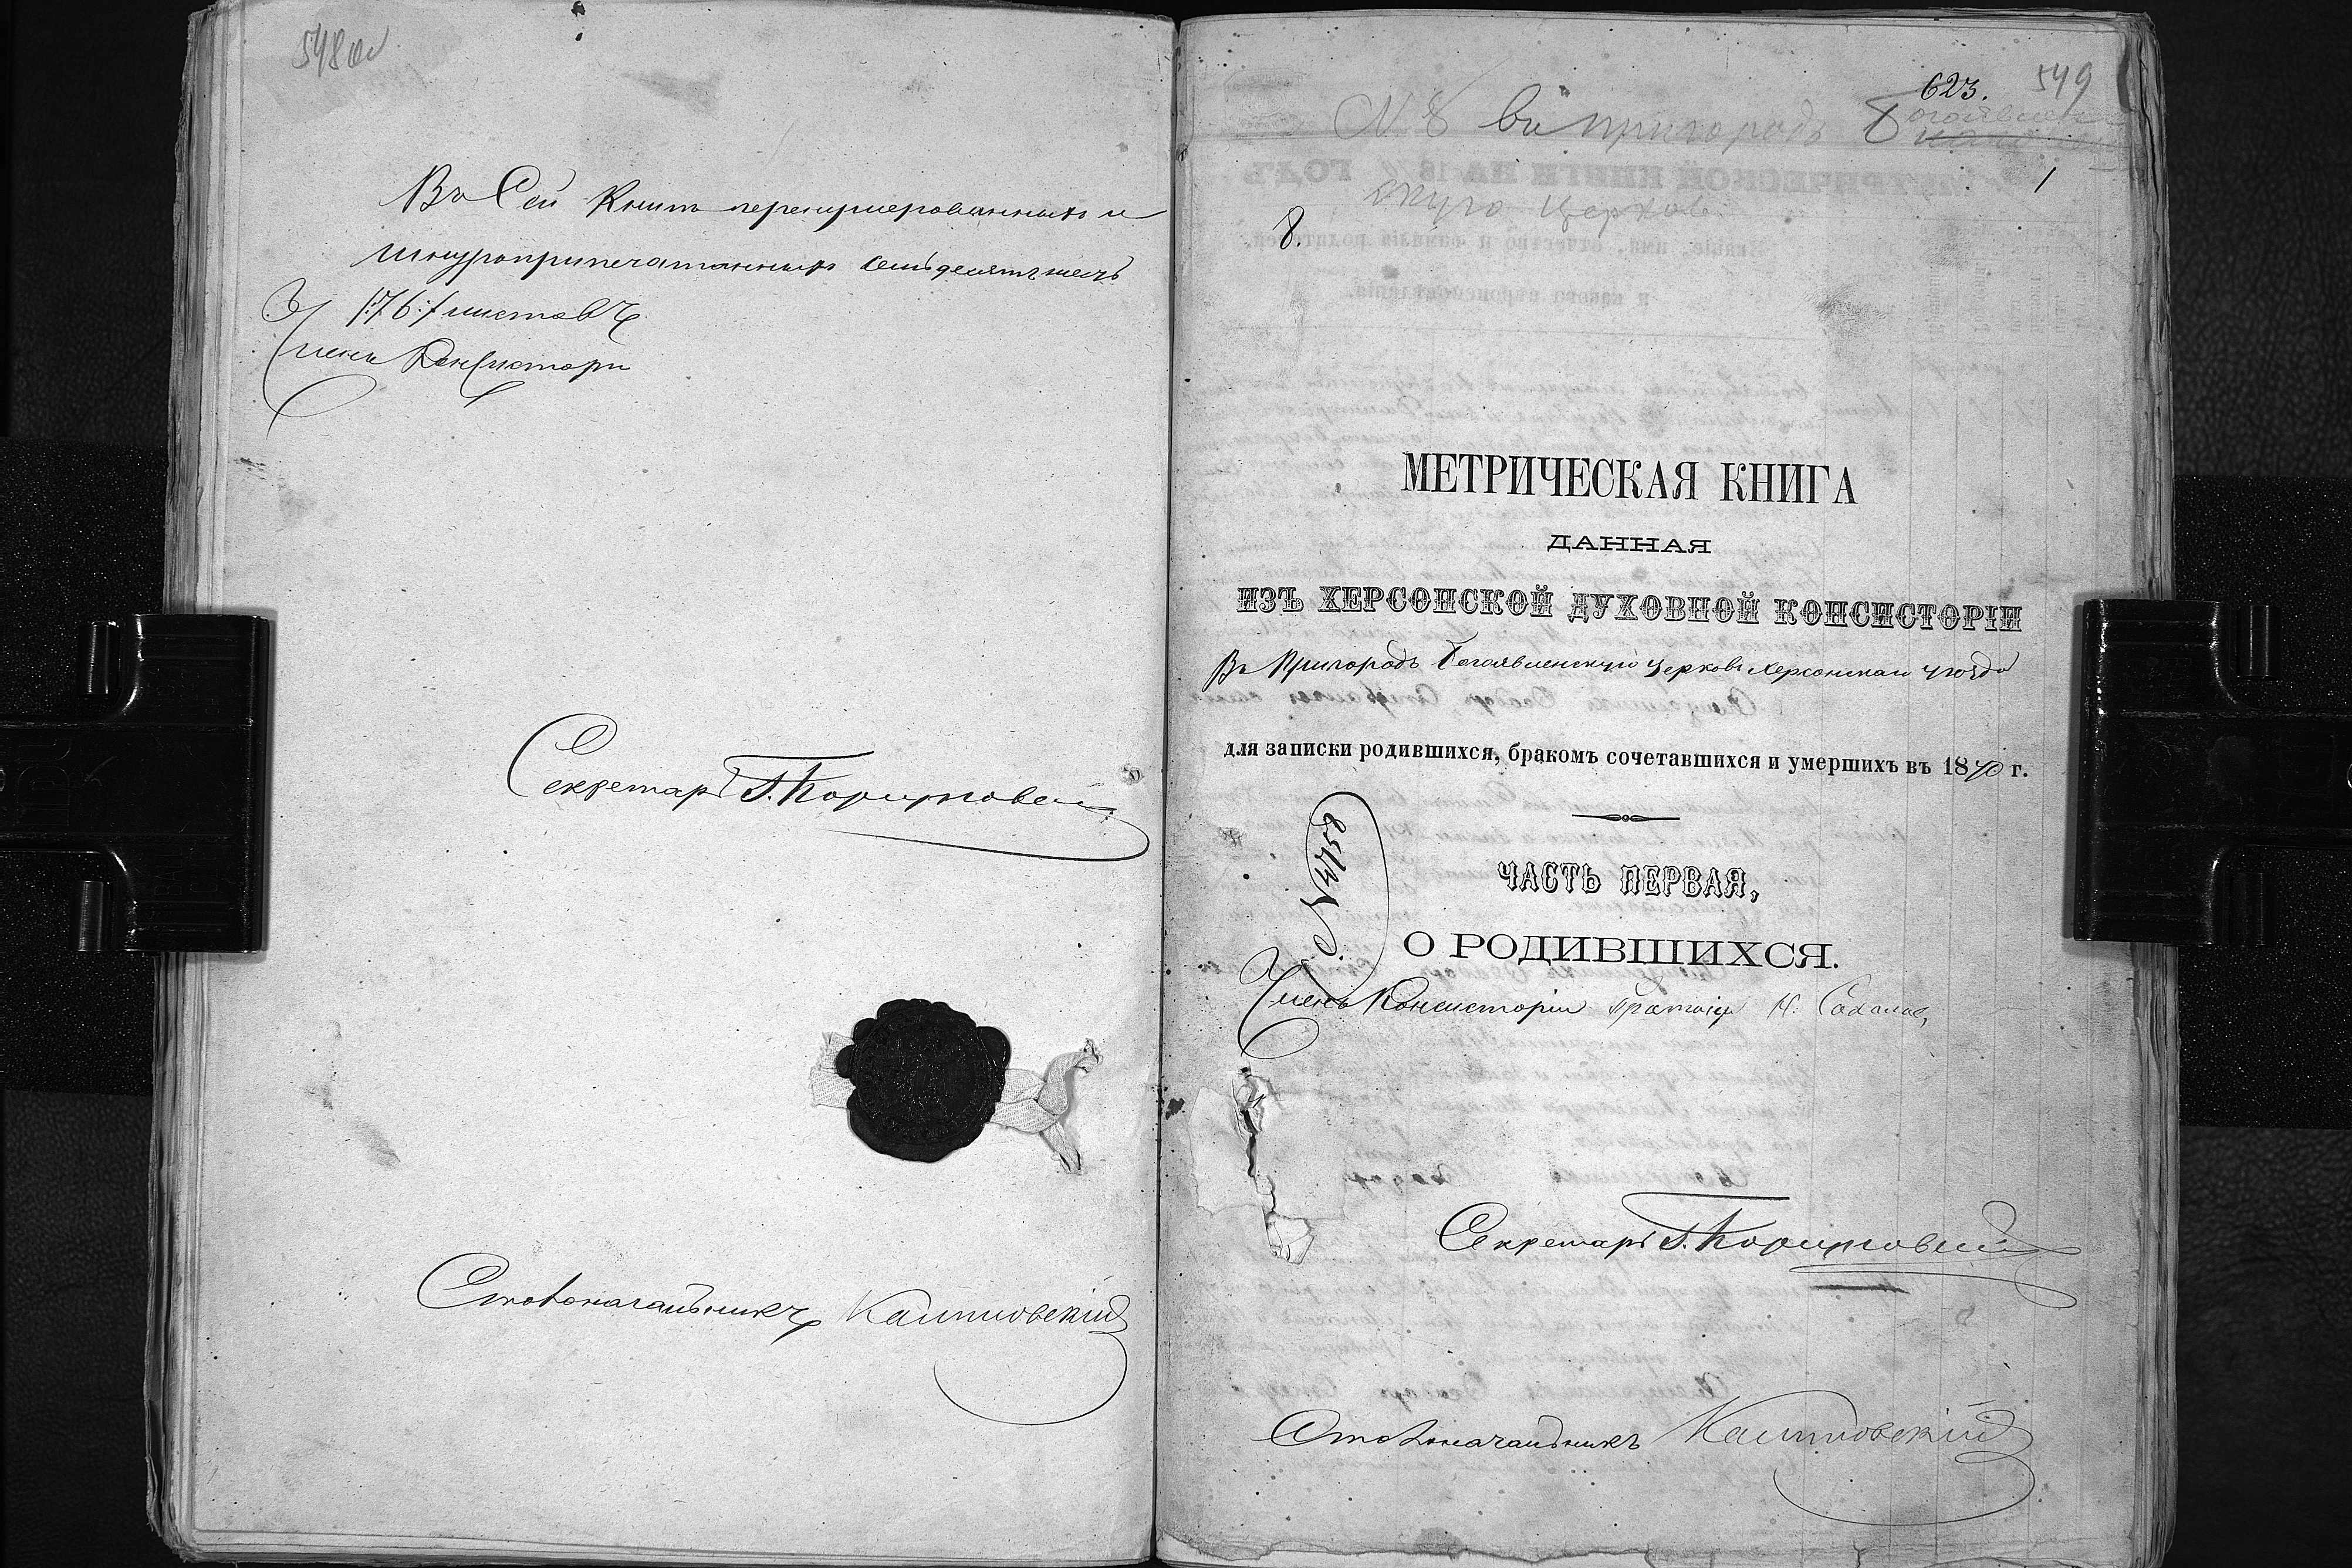 548 об
Въ Сей Книгѣ перенумерованныхъ и
шнуроприпечатанныхъ семьдесятъ шесть
/:76:/ листовъ
Членъ Консисторіи
Секретарь
Столоначальникъ Калиновскій
623. 549
№ 8 въ пригородъ Богоявленск
скую церковь
1
8.
МЕТРИЧЕСКАЯ КНИГА
ДАННАЯ
ИЗЪ ХЕРСОНСКОЙ ДУХОВНОЙ КОНСИСТОРІИ
Въ Пригородъ Богоявленскую церковь Херсонскаго уѣзда
для записки родившихся, бракомъ сочетавшихся и умершихъ въ 1870 г.
ЧАСТЬ ПЕРВАЯ,
О РОДИВШИХСЯ.
Членъ Консисторіи протоіер. Н. Соколов
Секретарь
Столоначальникъ Калиновскій